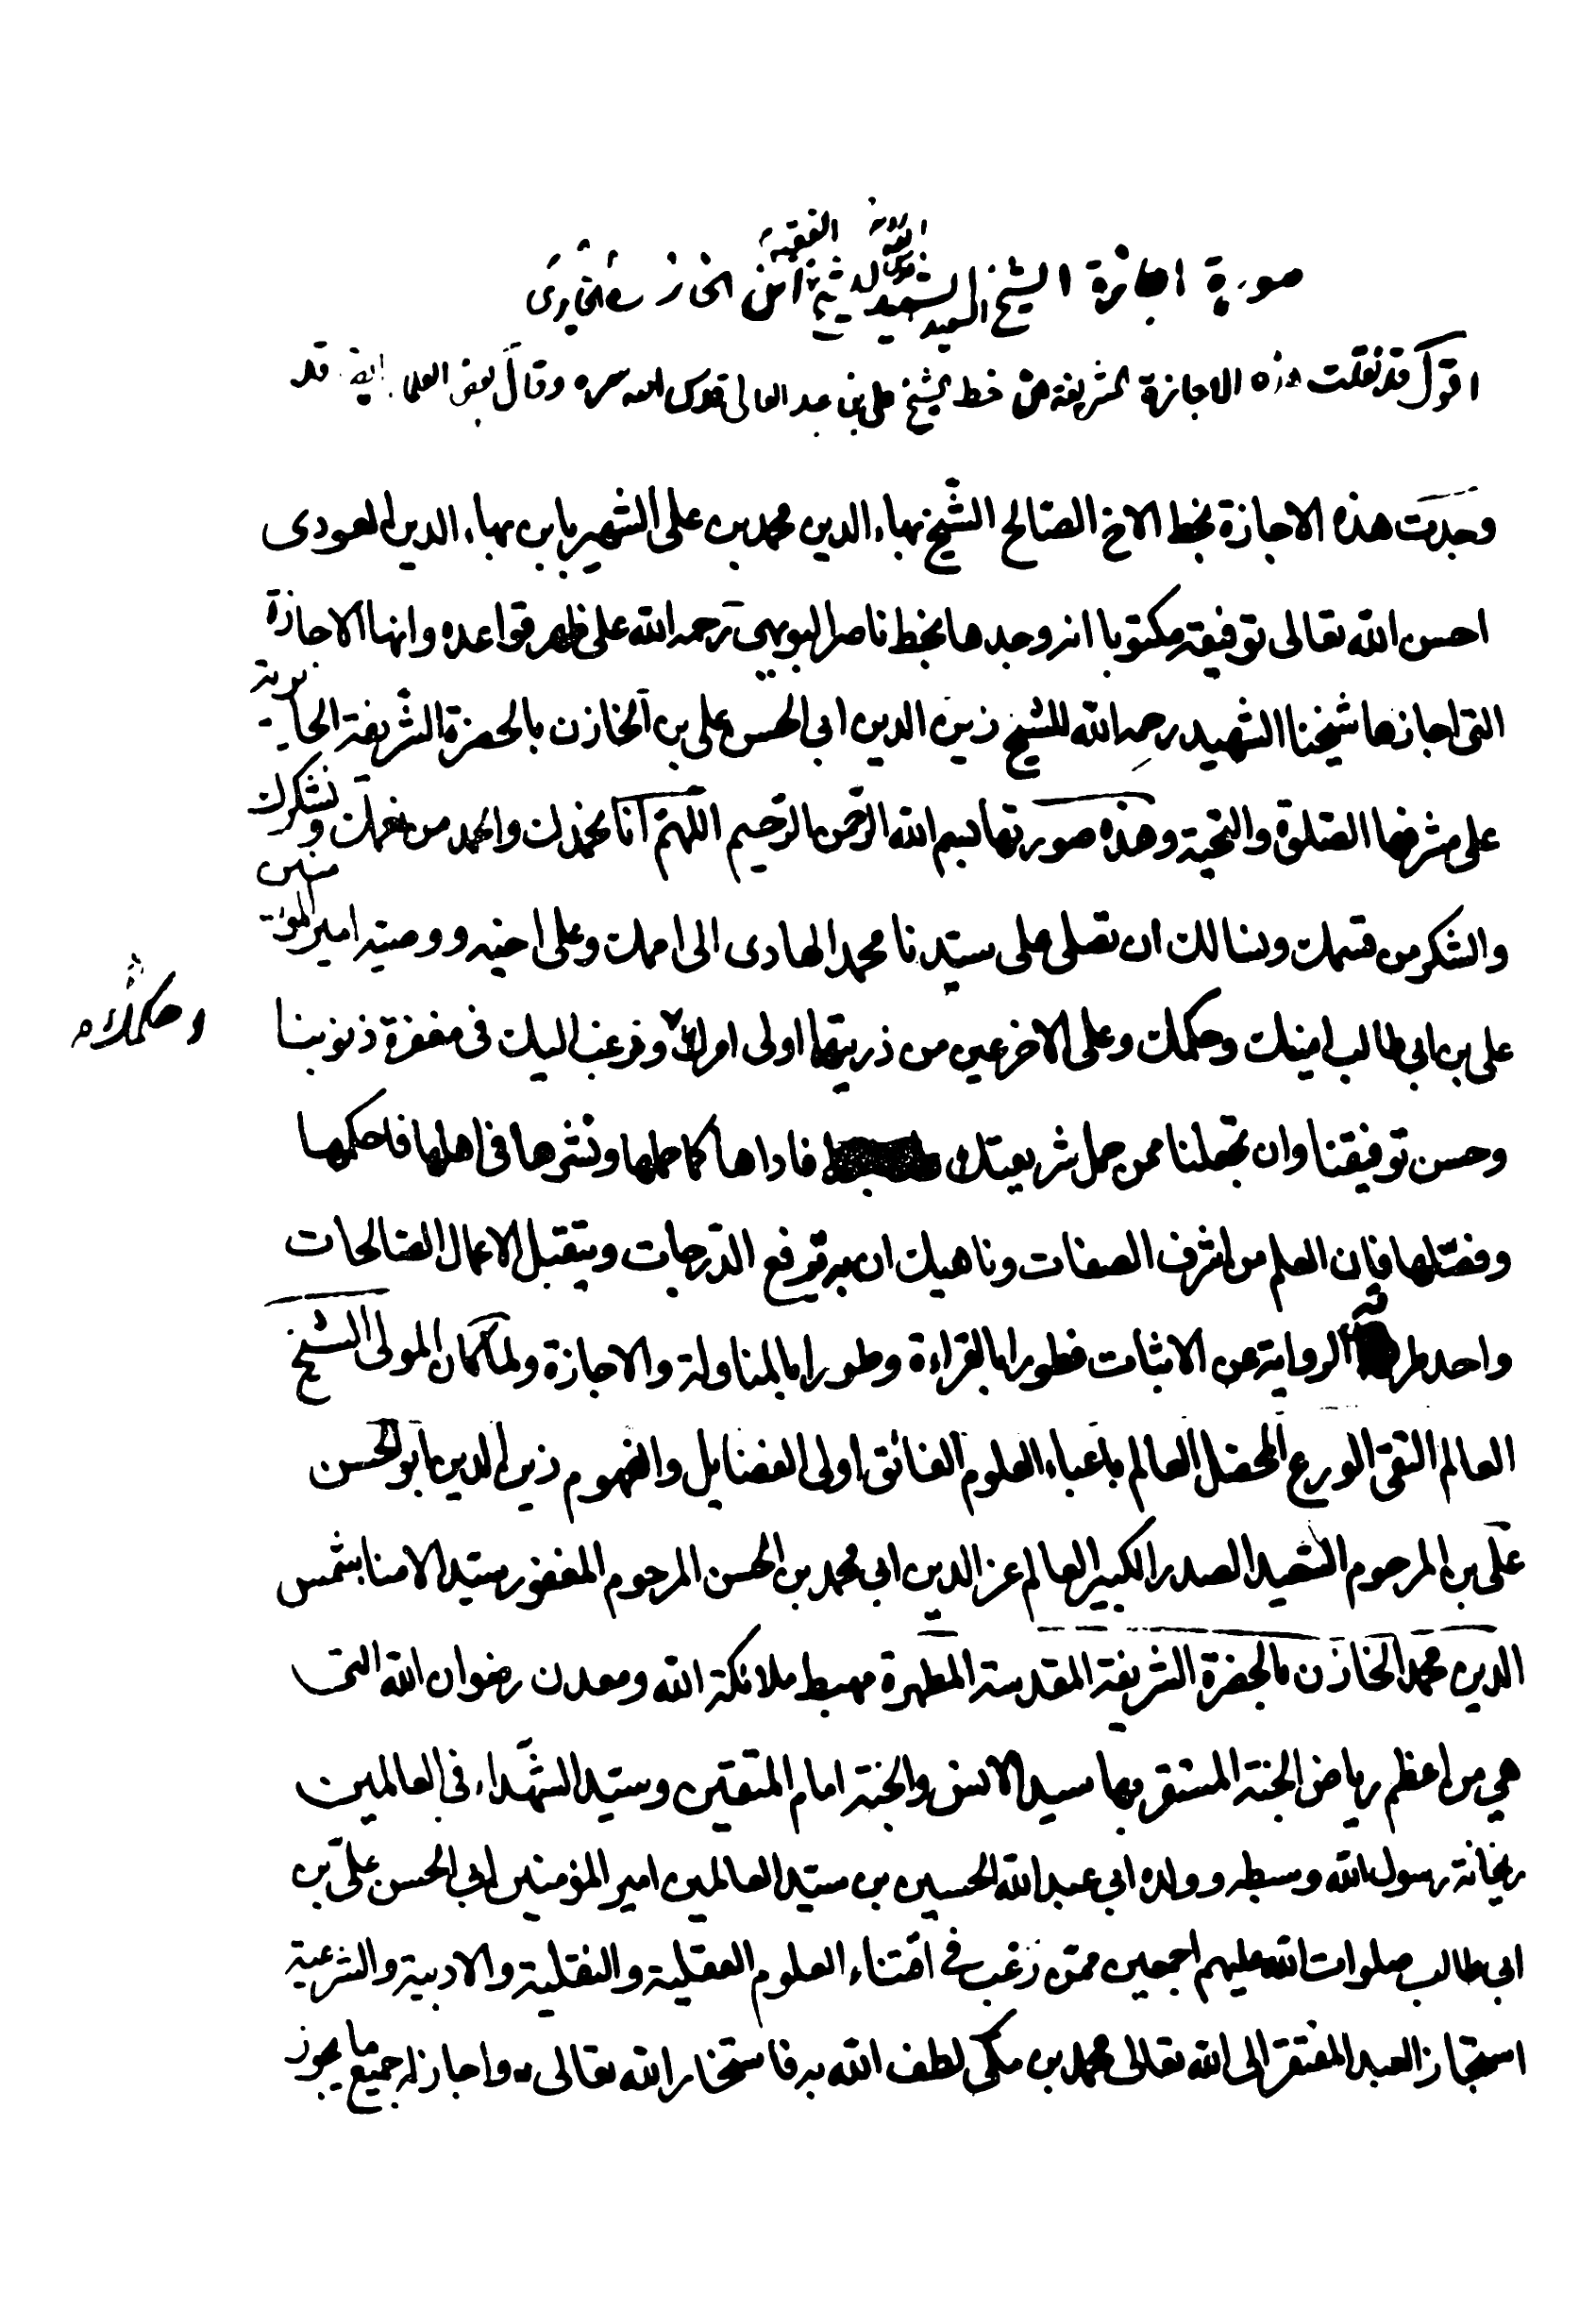 صورة اجازة الشيخ السعيد الشهيد قدس الله للشيخ الفقيه ابن الخازن الحايرى
اقول قد نقلت هذه الاجازة الشريفة من خط الشيخ على بن عبد العالى قدس الله سره وقال بعض العلماء ايضا قد
وجدت هذه الاجازة بخط الاخ الصالح الشيخ بهاء الدين محمد بن على الشهير بابن بهاء الدين العودى
احسن الله تعالى توفيقه مكتوبا انه وجدها بخط ناصر البويهى رحمه الله على ظهر قواعده وانها الاجازة
التى اجازها شيخنا الشهيد رحمه الله للشيخ زين الدين ابى الحسن على بن الخازن بالحضرة الشريفة الحايرية
على مشرفها الصلوة والتحية وهذه صورتها بسم الله الرحمن الرحيم اللهم انا نحمدك والحمد من نعمك ونشكرك
والشكر من قسمك ونسالك ان تصلى على سيدنا محمد الهادى الى امرك وعلى اخيه ووصيه امير المؤمنين
على بن ابى طالب امينك وحكمك وعلى الاخرين من ذريتهما اولى امرك ونرغب اليك فى مغفرة ذنوبنا
وحكمك
وحسن توفيقنا وان تجعلنا ممن حمل شريعتك فاداها كما حملها ونشرها فى اهلها فاحكمها
وفصلها فان العلم من اشرف الصفات وناهيك ان به ترفع الدرجات ويتقبل الاعمال الصالحات
واحد طرقه الرواية عن الاثبات فطورا بالقراءة وطورا بالمناولة والاجازة ولما كان المولى الشيخ
العالم التقى الورع المحصل العالم باعباء العلوم الفائق اولى الفضايل والفهوم زين الدين ابو الحسن
على بن المرحوم السعيد الصدر الكبير العالم عز الدين ابى محمد بن الحسن المرحوم المغفور سيد الامنا شمس
الدين محمد الخازن بالحضرة الشريفة المقدسة المطهرة مهبط ملائكة الله ومعدن رضوان الله التى
هي من اعظم رياض الجنة المستقر بها سيد الانس والجنة امام المتقين وسيد الشهداء فى العالمين
ريحانة رسول الله وسبطه وولده ابى عبد الله الحسين بن سيد العالمين امير المؤمنين ابى الحسن على بن
ابى طالب صلوات الله عليهم اجمعين ممن رغب فى اقتناء العلوم العقلية والنقلية والادبية والشرعية
استجاز العبد المفتقر الى الله تعالى محمد بن مكى لطف الله به فاستخار الله تعالى واجاز له جميع ما يجوز